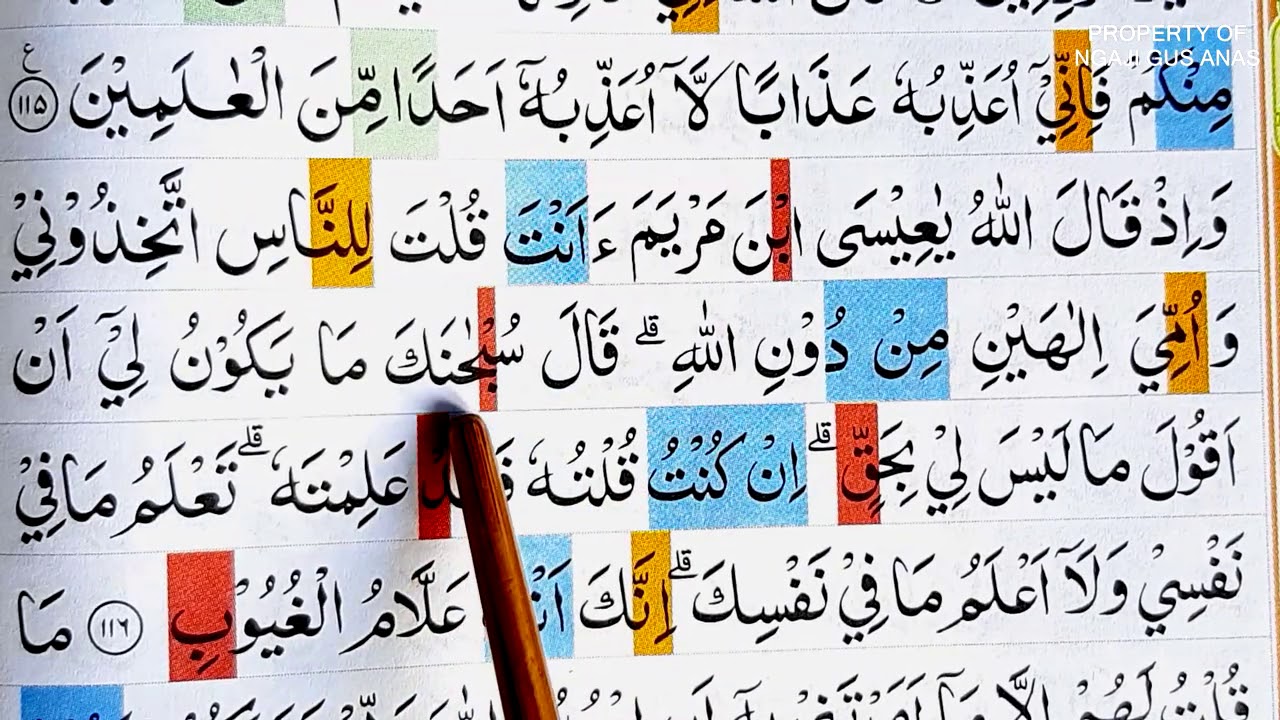 PROPERTY OF
NGAJI GUS ANAS
مِنْكُمْ فَاِنِّيْٓ اُعَذِّبُهٗ عَذَابًا لَّآ اُعَذِّبُهٗٓ اَحَدًا مِّنَ الْعٰلَمِيْنَ ١١٥ ع
وَاِذْ قَالَ اللّٰهُ يٰعِيْسَى ابْنَ مَرْيَمَ ءَاَنْتَ قُلْتَ لِلنَّاسِ اتَّخِذُوْنِيْ
وَاُمِّيَ اِلٰهَيْنِ مِنْ دُوْنِ اللّٰهِ ۗ قَالَ سُبْحٰنَكَ مَا يَكُوْنُ لِيْٓ اَنْ
اَقُوْلَ مَا لَيْسَ لِيْ بِحَقٍّ ۗ اِنْ كُنْتُ قُلْتُهٗ عَلِمْتَهٗ ۗ تَعْلَمُ مَا فِيْ
نَفْسِيْ وَلَآ اَعْلَمُ مَا فِيْ نَفْسِكَ ۗ اِنَّكَ عَلَّامُ الْغُيُوْبِ ١١٦ مَا
قُلْتُ لَهُمْ اِلَّا مَآ